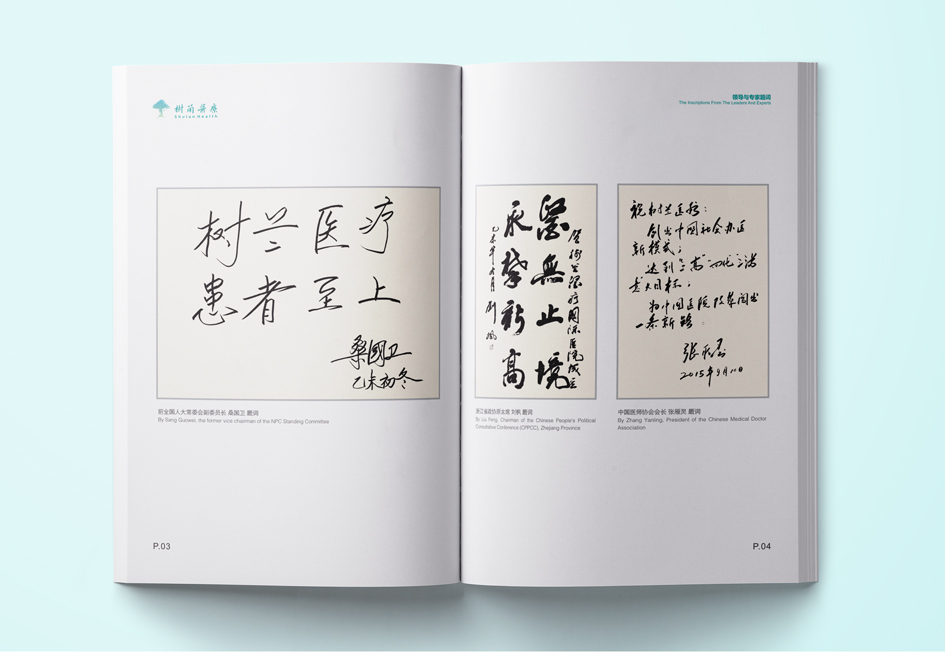 Shulan Health
树兰医疗
患者至上
桑國卫
乙未初冬
前全国人大常委会副委员长 桑国卫 题词
By Sang Guowei, the former vice chairman of the NPC Standing Committee
P.03
领导与专家题词
The Inscriptions From The Leaders And Experts
醫無止境
永攀新高
浙江省政协原主席 刘枫 题词
By Liu Feng, Chairman of the Chinese People's Political
Consultative Conference (CPPCC), Zhejiang Province
祝树兰医疗：
创出中国社会办医
新模式；
达到
意大目标；
为中国医院改革闯出
一条新路
张雁灵
2015年9月10日
中国医师协会会长 张雁灵 题词
By Zhang Yanling, President of the Chinese Medical Doctor
Association
P.04